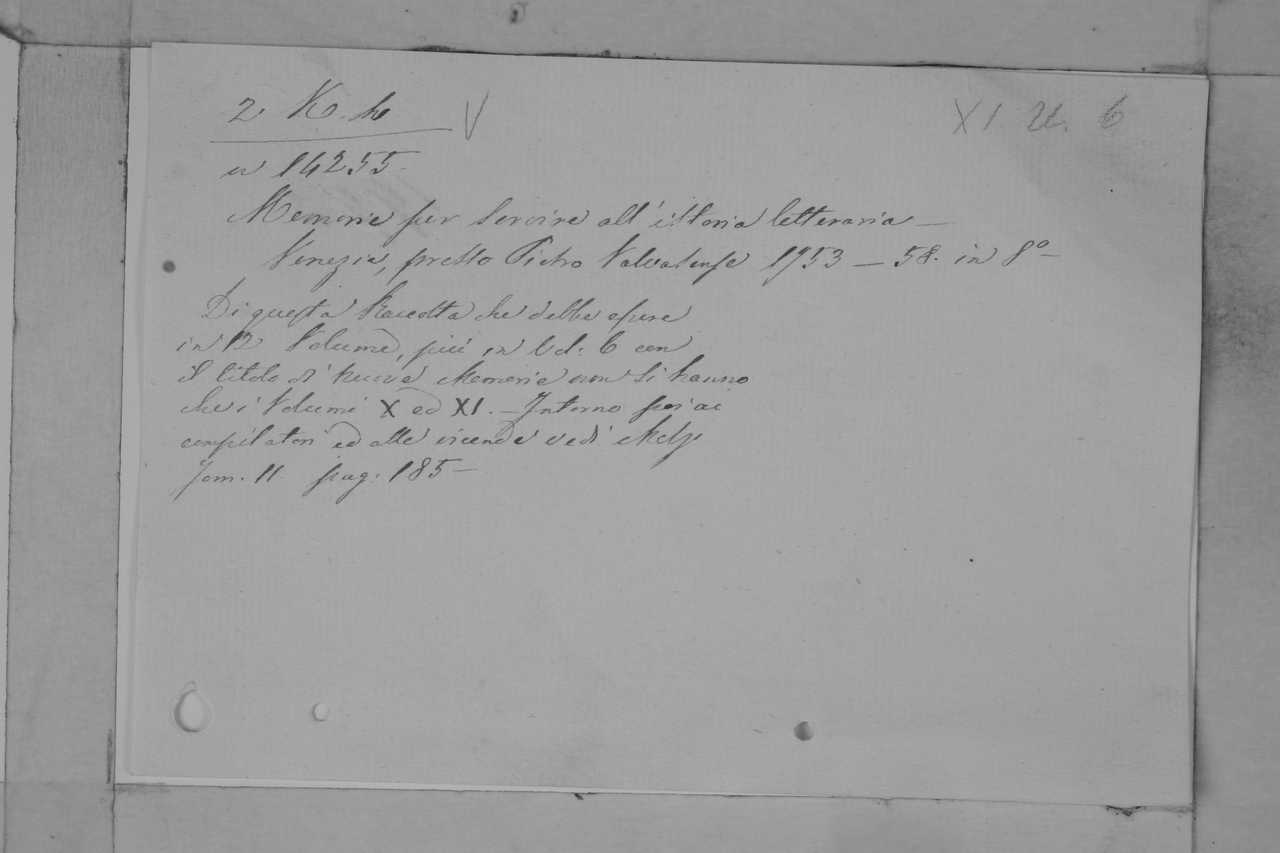 2 K. h V
XI U. 6
n 14255.
Memorie per servire all'istoria letteraria —
Venezia, presso Pietro Valvasense 1753 — 58. in 8º —
Di questa Raccolta che debbe essere
in 12 Volumi, più in Vol: 6 con
il titolo di Nuove Memorie non si hanno
che i Volumi X ed XI. — Intorno poi ai
compilatori ed alle vicende vedi Melzi
Tom. II. pag: 185 —